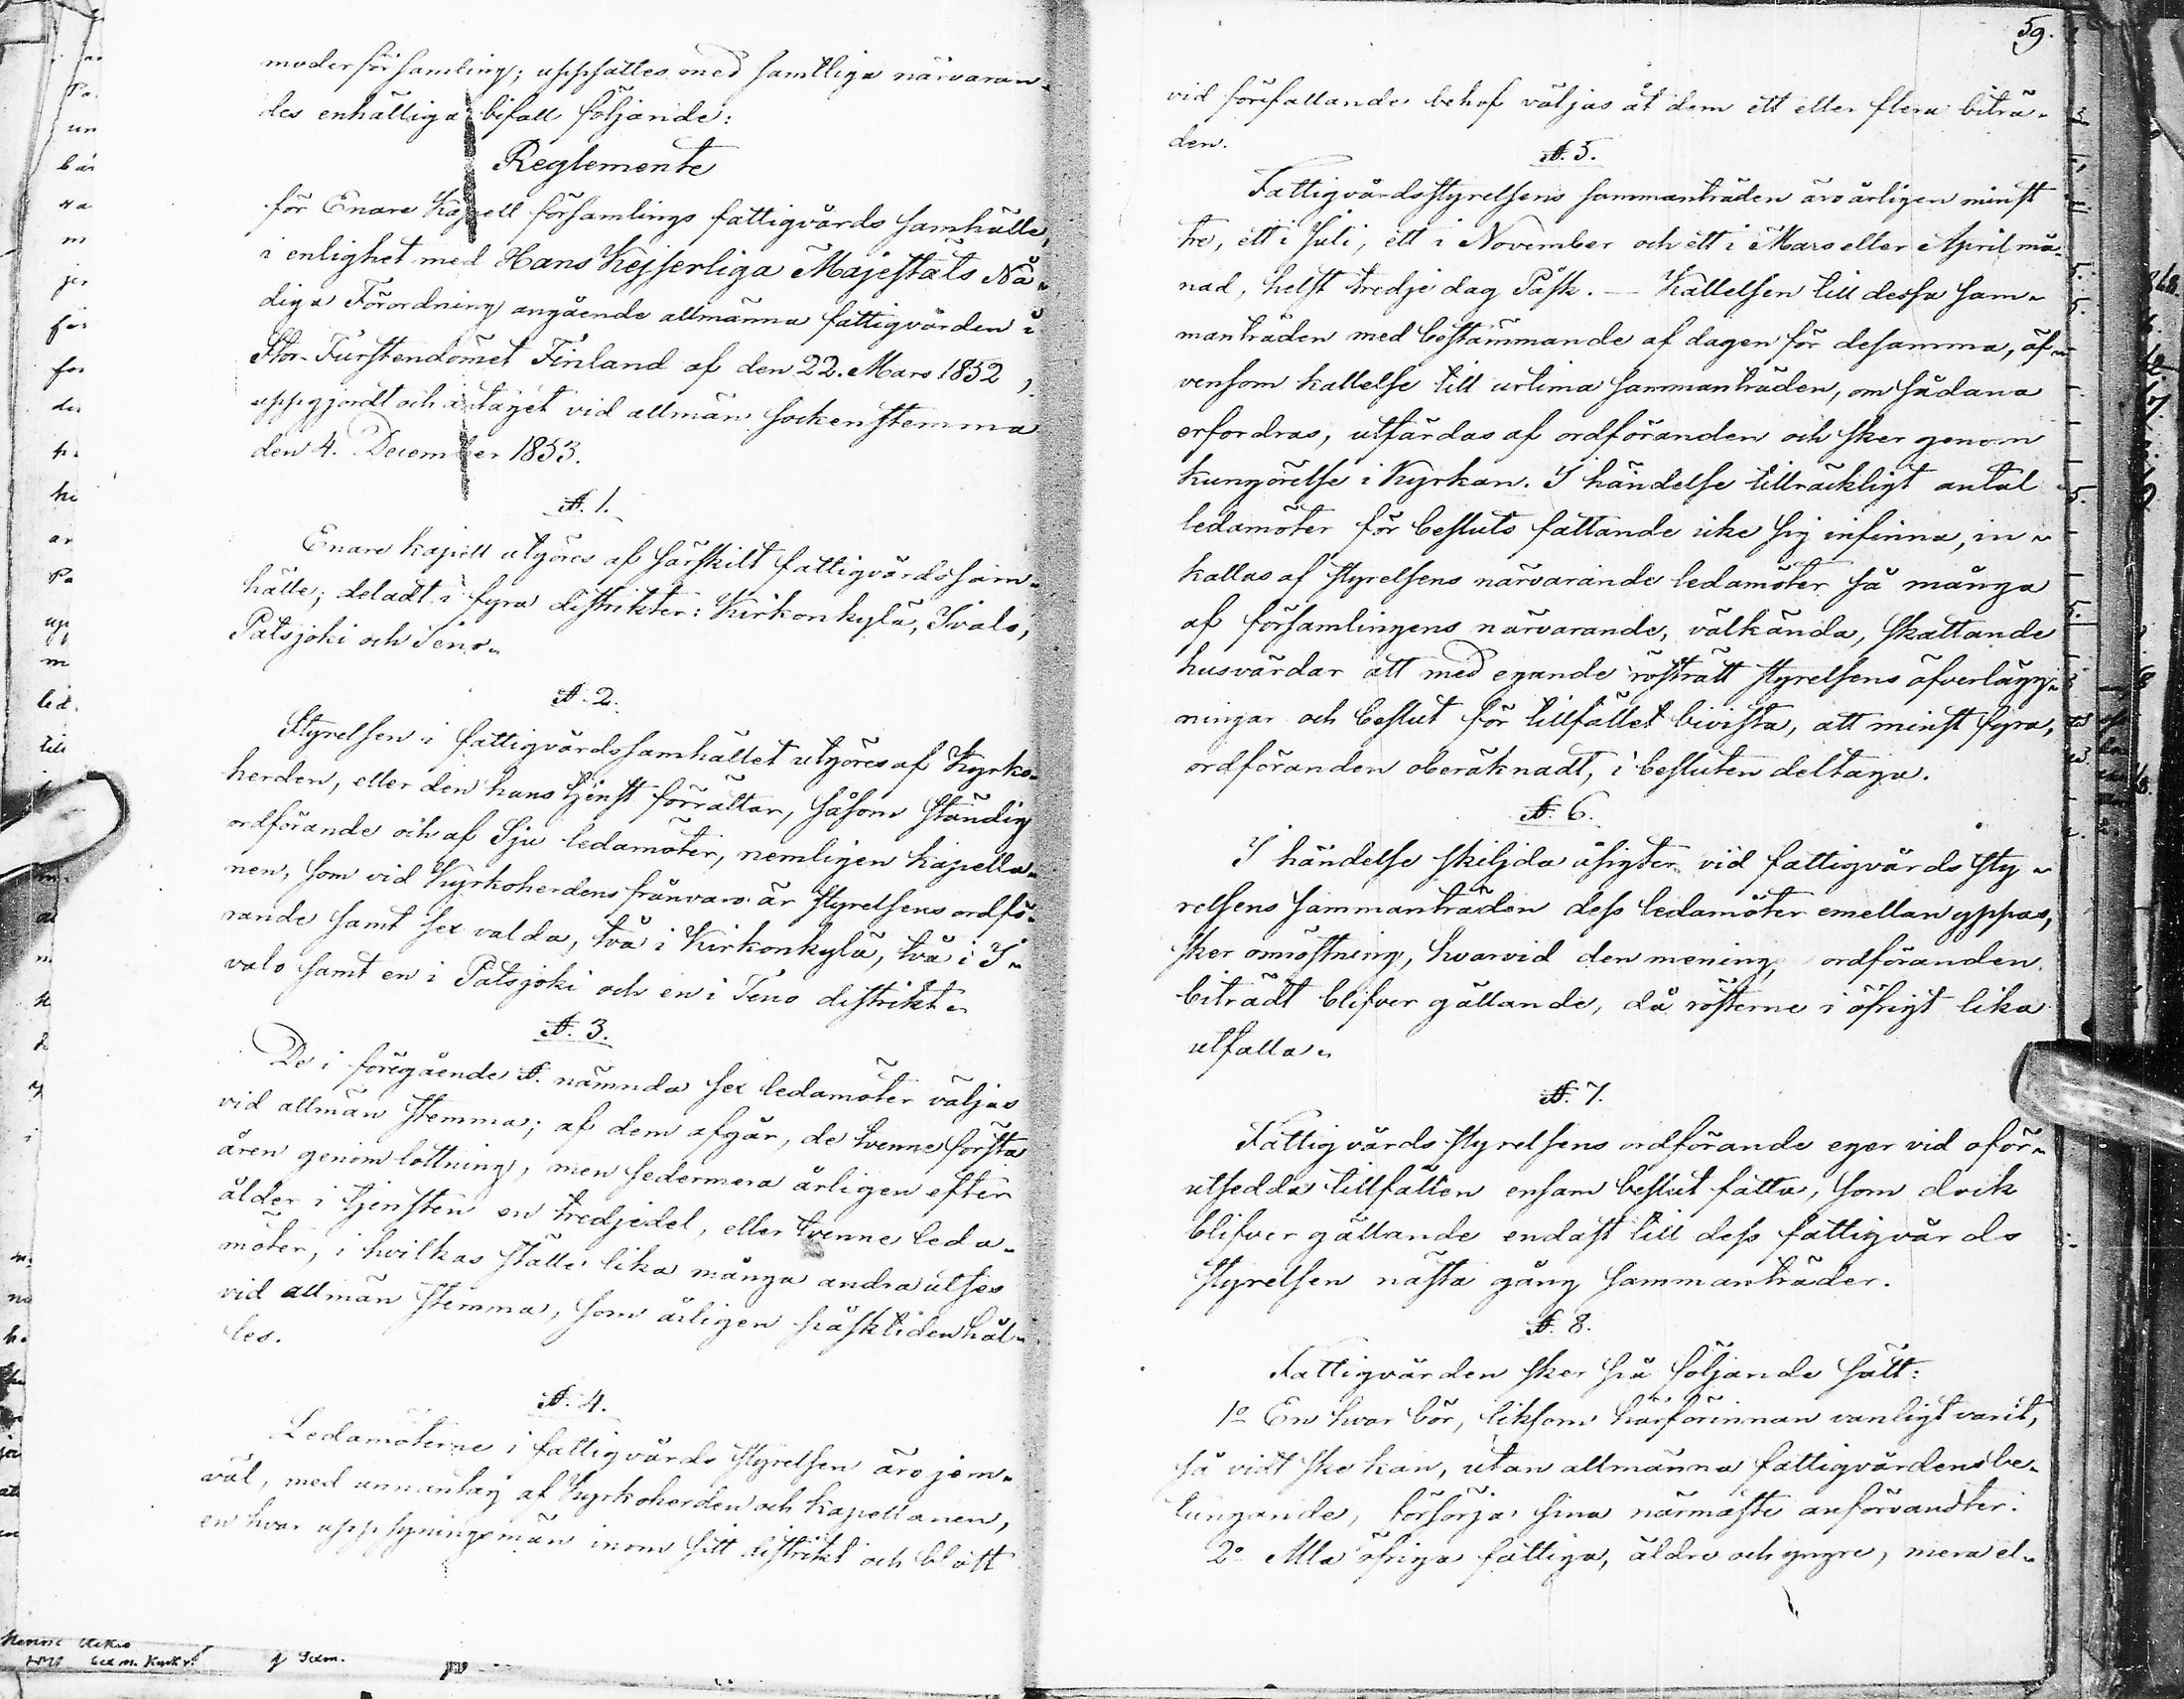 moderförsamling; uppsattes med samtliga närvaran-
des enhälliga bifall följande:
Reglemente
för Enare Kapell församlings fattigvårds samhälle,
i enlighet med Hans Kejserliga Majestäts Nå-
diga Förordning angående allmänna fattigvården i
Stor-Furstendömet Finland af den 22. Mars 1852,
uppgjordt och antaget vid allmän sockenstemma
den 4. December 1853.
§. 1.
Enare kapell utgöres af särskilt fattigvårdssam-
hälle; deladt i fyra distrikter: Kirkonkylä, Ivalo,
Patsjoki och Teno.
§. 2.
Styrelsen i fattigvårdssamhället utgöres af Kyrko-
herden, eller den hans tjenst förrättar, såsom ständig
ordförande och af Sju ledamöter, nemligen kapella-
nen, som vid Kyrkoherdens frånvaro är styrelsens ordfö-
rande samt sex valda, två i Kirkonkylä, två i I-
valo samt en i Patsjoki och en i Teno distrikt.
§. 3.
De i föregående §. nämnda sex ledamöter väljas
vid allmän stemma; af dem afgår, de tvenne första
åren genom lottning, men sedermera årligen efter
ålder i tjensten en tredjedel, eller tvenne leda-
möter, i hvilkas ställe lika många andra utses
vid allmän stemma, som årligen påsktiden hål-
les.
§. 4.
Ledamöterne i fattigvårds styrelsen äro jem-
väl, med undantag af Kyrkoherden och kapellanen,
en hvar uppsyningsman inom sitt distrikt och blott
59.
vid förefallande behof väljas åt dem ett eller flera biträ-
den.
§. 5.
Fattigvårdsstyrelsens sammanträden äro årligen minst
tre, ett i Juli, ett i November och ett i Mars eller April må-
nad, helst tredje dag Påsk. — Kallelsen till dessa sam-
manträden med bestämmande af dagen för desamma, äf-
vensom kallelse till urtima sammanträden, om sådana
erfordras, utfärdas af ordföranden och sker genom
kungörelse i Kyrkan. I händelse tillräckligt antal
ledamöter för besluts fattande icke sig infinna, in-
kallas af styrelsens närvarande ledamöter så många
af församlingens närvarande, välkända, skattande
husvärdar att med egande rösträtt styrelsens öfverlägg-
ningar och beslut för tillfället bivista, att minst fyra,
ordföranden oberäknadt, i besluten deltaga.
§. 6.
I händelse skiljda åsigter vid fattigvårds sty-
relsens sammanträden dess ledamöter emellan yppas,
sker omröstning, hvarvid den mening, ordföranden
biträdt blifver gällande, då rösterne i öfrigt lika
utfalla.
§. 7.
Fattigvårds styrelsens ordförande eger vid oför-
utsedda tillfällen ensam beslut fatta, som dock
blifver gällande endast till dess fattigvårds
styrelsen nästa gång sammanträder.
§. 8.
Fattigvården sker på följande sätt:
1o En hvar bör, liksom härförinnan vanligt varit,
så vidt ske kan, utan allmänna fattigvårdens be-
tungande, försörja sina närmaste anförvandter.
2o Alla öfriga fattiga, äldre och yngre, mera el-